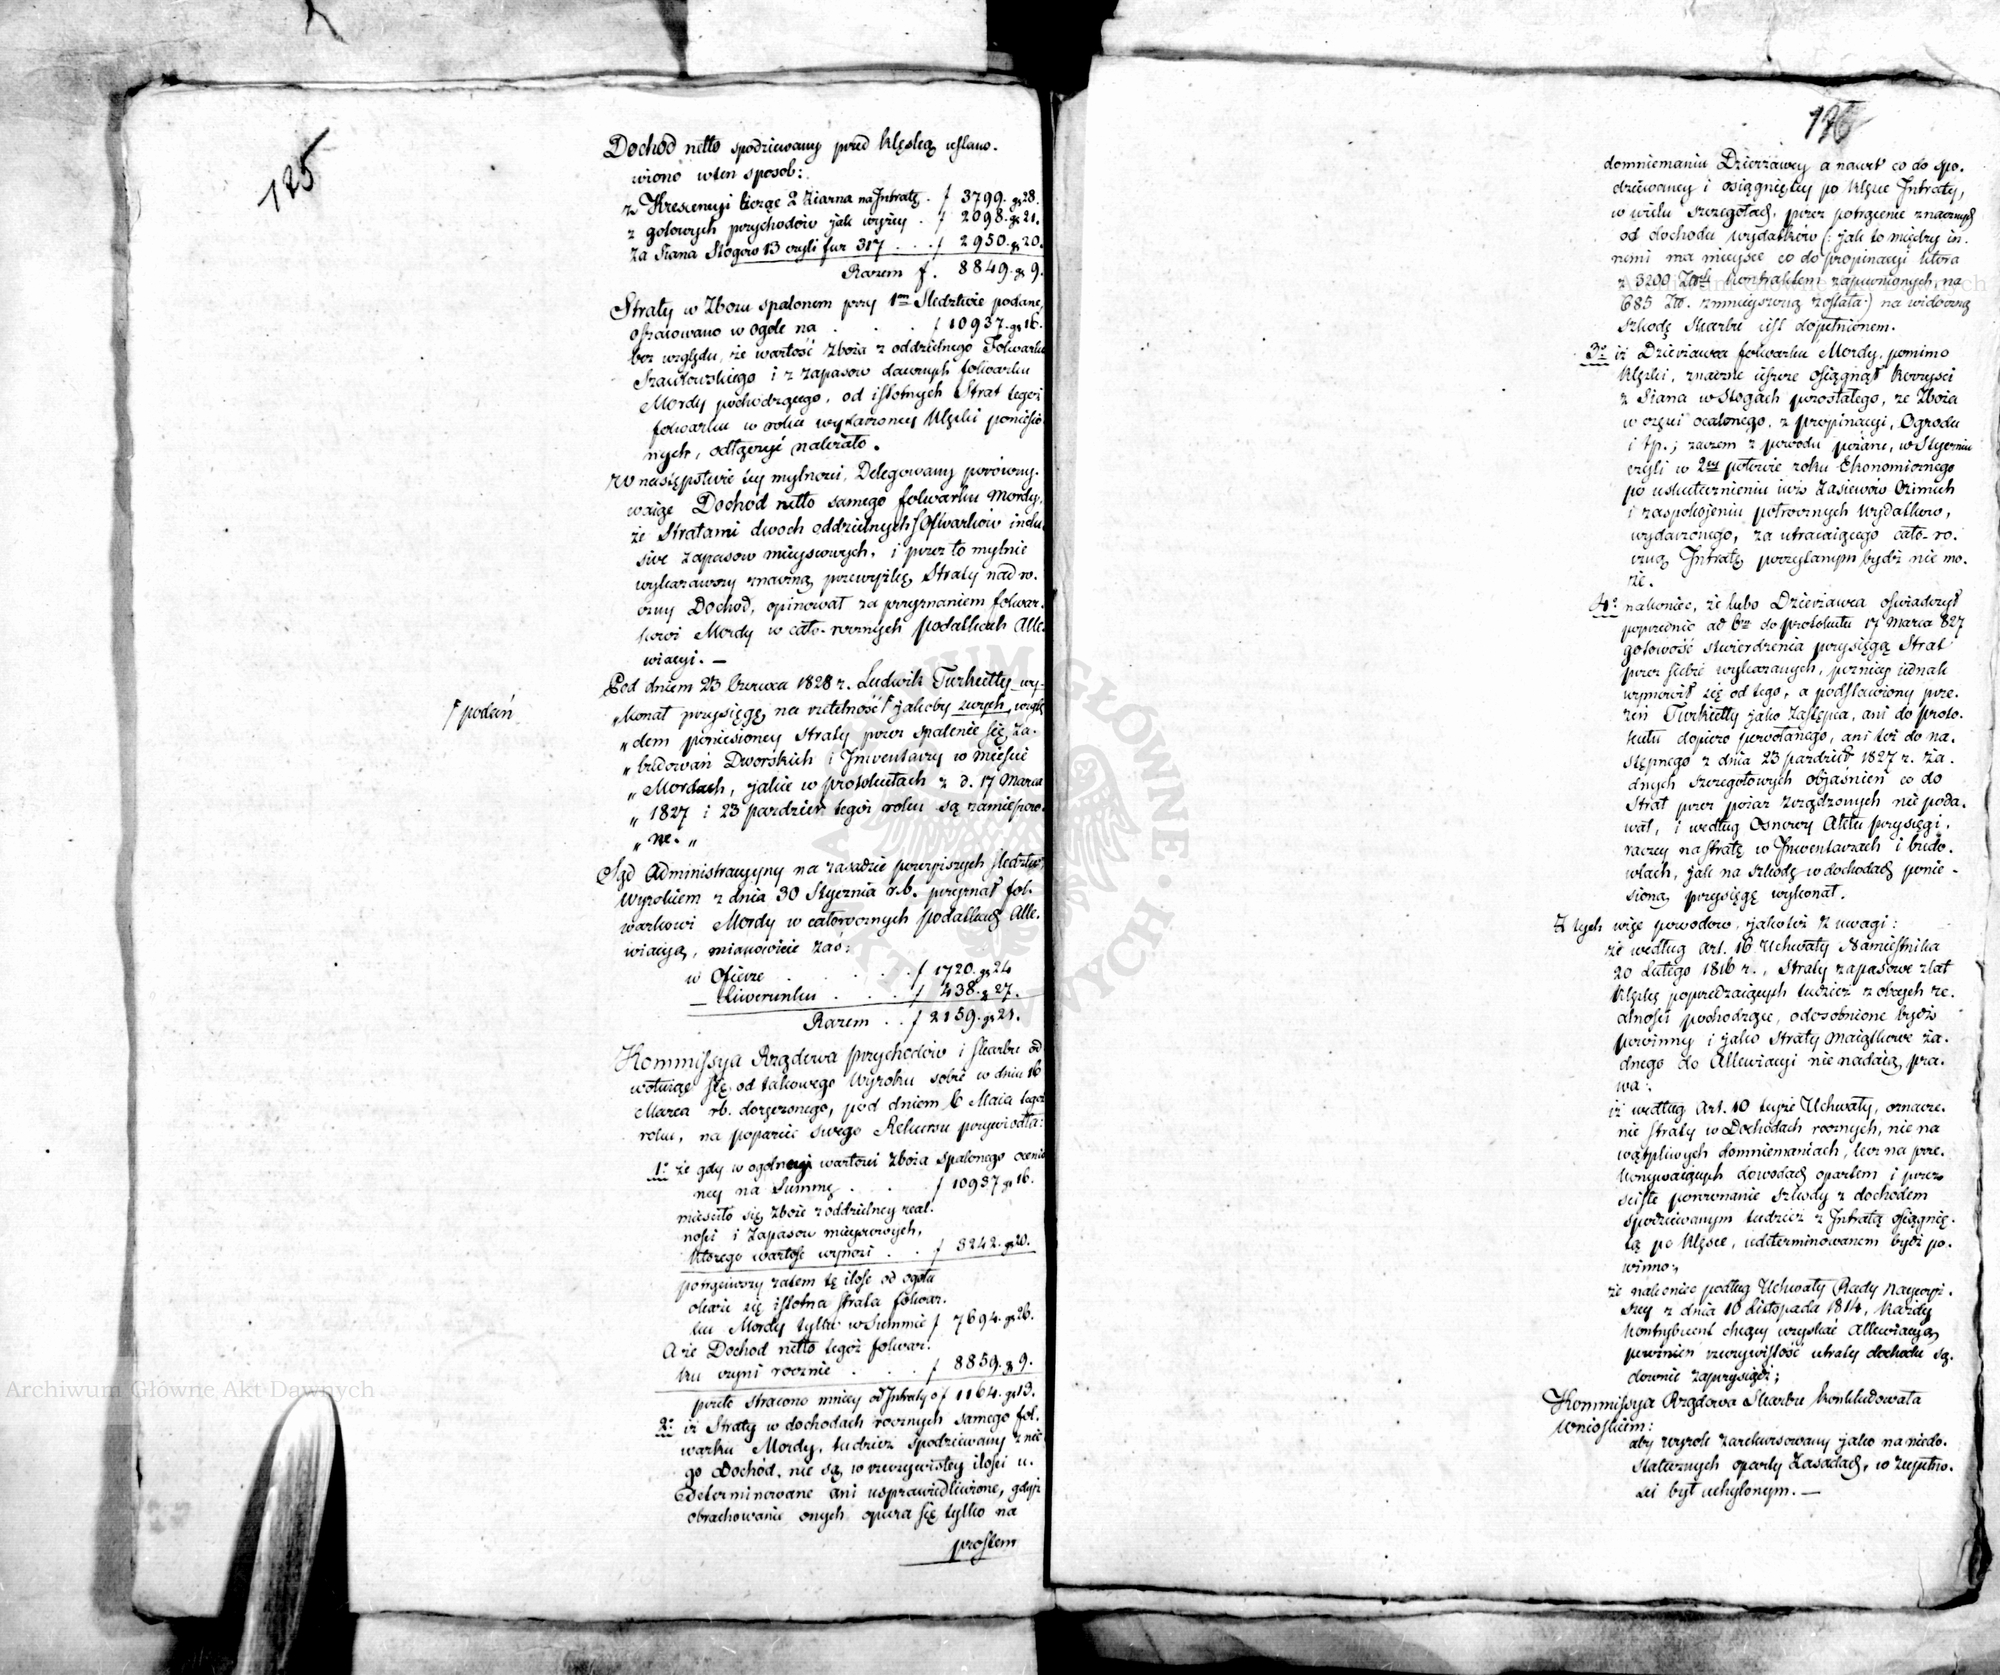 125
Dochod netto spodziewany przed klęską ustano-
wiono w ten sposob:
z Krescencyi licząc 2 Ziarna na Intratę . f 3799. gr 28.
z gotowych przychodow jak wyżey . f 2098. gr 21.
za Siana Stogow 13 czyli fur 317 . . . f 2950. gr 20.
Razem f. 8849. gr 9.
Straty w Zbożu spalonem przy 1m Śledztwie podane,
oszacowano w ogole na . . . . f 10937. gr 16.
bez względu, że wartość Zboża z oddzielnego Folwarku
i z zapasow dawnych folwarku
Mordy pochodzącego, od istotnych Strat tegoż
folwarku w roku wykazoney klęski poniesio-
nych, odłączyć należało.
W następstwie tey mylności, Delegowany porówny-
waiąc Dochód netto samego folwarku Mordy,
ze Stratami dwoch oddzielnych folwarków inclu-
sive zapasow mieyscowych, i przez to mylnie
wykazawszy znaczną przewyżkę Straty nad ro-
czny Dochod, opinował za przyznaniem folwar-
kowi Mordy w cało-rocznych podatkach Alle-
wiacyi. —
Pod dniem 23 Czerwca 1828 r. Ludwik Turkiełły „wy-
„konał przysięgę na rzetelność jakoby zwych, wzglę
podań
„dem poniesioney Straty przez spalenie się Za-
„budowań Dworskich i Inwentarzy w mieście
„Mordach, jakie w protokułach z d. 17 Marca
„1827 i 23 pazdzier. tegoż roku są zamieszczo-
„ne. „
Sąd Administracyjny na zasadzie powyższych śledztw,
Wyrokiem z dnia 30 Stycznia r.b. przyznał fol-
warkowi Mordy w całorocznych podatkach Alle-
wiacyą, mianowicie zaś:
w Ofierze . . . . . f 1720. gr 24
— Liwerunku . . . . f 438. gr 27.
Razem . . f 2159. gr 21.
Kommissya Rządowa przychodów i Skarbu od-
wołuiąc się od takowego Wyroku sobie w dniu 16
Marca rb. doręczonego, pod dniem 6 Maia tegoż
roku, na poparcie swego Rekursu przywiodła:
1o że gdy w ogolney wartości Zboża spalonego ocenio-
ney na Summę . . . . f 10937 gr 16.
mieściło się zboże z oddzielney real-
ności i Zapasow mieyscowych,
ktorego wartość wynosi . . f 3242. gr 20.
potrąciwszy zatem tę ilość od ogółu
okaże się istotna strata folwar-
ku Mordy tylko w Summie f 7694. gr 26.
A że Dochod netto tegoż folwar-
ku czyni rocznie . . . f 8859. gr 9.
przeto stracono mniey od Intraty o f 1164. gr 13.
2o iż Straty w dochodach rocznych samego fol-
warku Mordy, tudzież spodziewany z nie-
go Dochód, nie są w rzeczywistey ilości u-
determinowane ani usprawiedliwione, gdyż
obrachowanie onych opiera się tylko na
prostem
126
domniemaniu Dzierżawcy a nawet co do spo-
dziewaney i osiągniętey po klęsce Intraty,
w wielu szczegołach, przez potrącenie znacznych
od dochodu wydatków (: jak to między in-
nemi ma mieysce co do propinacyi ktora
z 3200 Złotch kontraktem zapewnionych, na
685 Zł. zmnieyszoną została:) na widoczną
szkodę Skarbu iest dopełnionem.
3o iż Dzierżawca folwarku Mordy, pomimo
klęski, znaczne ieszcze osiągnął korzyści
z Siana w Stogach pozostałego, ze Zboża
w części ocalonego, z propinacyi, Ogrodu
i tp.; zaczem z powodu pożaru, w Styczniu
czyli w 2iey połowie roku Ekonomicznego
po uskutecznieniu iuż Zasiewów Ozimich
i zaspokojeniu połrocznych wydatkow,
wydarzonego, za utracaiącego cało-ro-
czną Intratę poczytanym bydź nie mo-
że.
4o nakoniec, że lubo Dzierżawca oświadczył
poprzednio ad 6m do protokułu 17 Marca 827
gotowość stwierdzenia przysięgą Strat
przez siebie wykazanych, pozniey iednak
wymowił się od tego, a podstawiony prze-
zeń Turkiełły jako Zastępca, ani do proto-
kułu dopiero powołanego, ani też do na-
stępnego z dnia 23 pazdzier 1827 r. ża-
dnych szczegołowych objaśnień co do
Strat przez pożar zrządzonych nie poda-
wał, i według Osnowy Aktu przysięgi,
raczey na stratę w Inwentarzach i budo-
wlach, jak na szkodę w dochodach ponie-
sioną, przysięgę wykonał.
Z tych więc powodow, jakoteż z uwagi:
że według Art. 16 Uchwały Namiestnika
20 Lutego 1816 r., Straty zapasowe z lat
klęskę poprzedzaiących tudzież z obcych re-
alności pochodzące, odosobnione bydź
powinny i jako straty maiątkowe ża-
dnego do Allewiacyi nie nadaią pra-
wa;
iż według Art. 10 teyże Uchwały, oznacze-
nie straty w Dochodach rocznych, nie na
wątpliwych domniemaniach, lecz na prze-
konywaiących dowodach opartem i przez
ścisłe porownanie szkody z dochodem
spodziewanym tudzież z Intratą osiągnię-
tą po klęsce, udeterminowanem bydź po-
winno;
że nakoniec podług Uchwały Rady Naywyż-
szey z dnia 10 Listopada 1814, każdy
kontrybuent chcący uzyskać Allewiacyą
powinien rzeczywistość utraty dochodu są-
downie zaprzysiądz;
Kommissya Rządowa Skarbu konkludowała
wnioskiem:
aby wyrok zarekursowany jako na niedo-
statecznych oparty Zasadach, w zupełno-
ści był uchylonym. —
Archiwum Główne Akt Dawnych